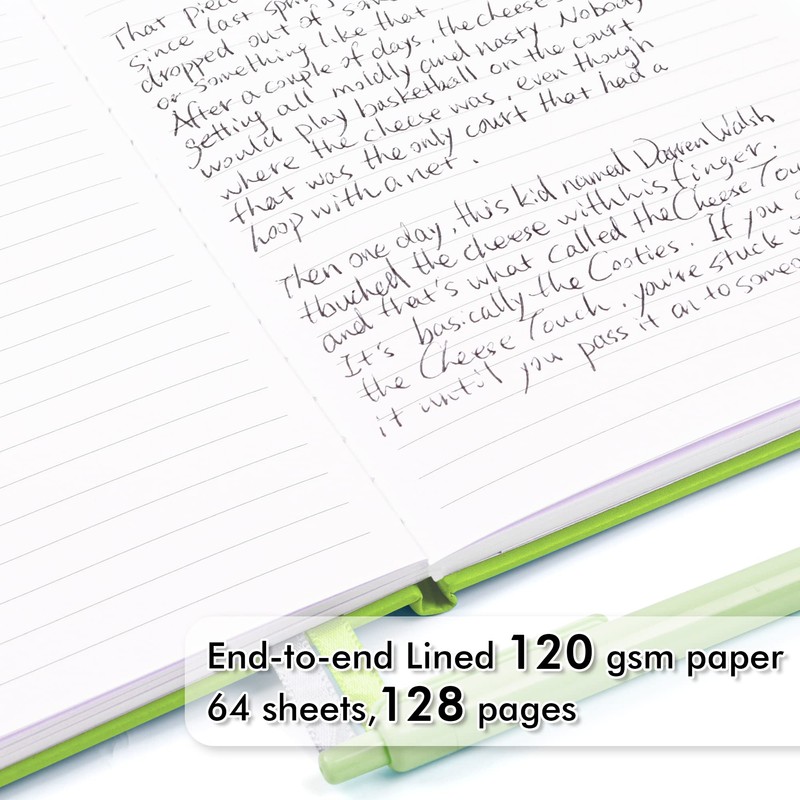 That piec
since last spri
dropped out of som
or something like that
After a couple of days, the cheese
getting all moldly and nasty. Nobody
would play basketball on the court
where the cheese was, even though
that was the only court that had a
hoop with a net.
Then one day, this kid named Darren Walsh
touched the cheese with his finger.
and that's what called the Cheese Tou
It's basically the Cooties. If you
the Cheese Touch, you're stuck
it until you pass it on to someo
End-to-end Lined 120 gsm paper
64 sheets,128 pages